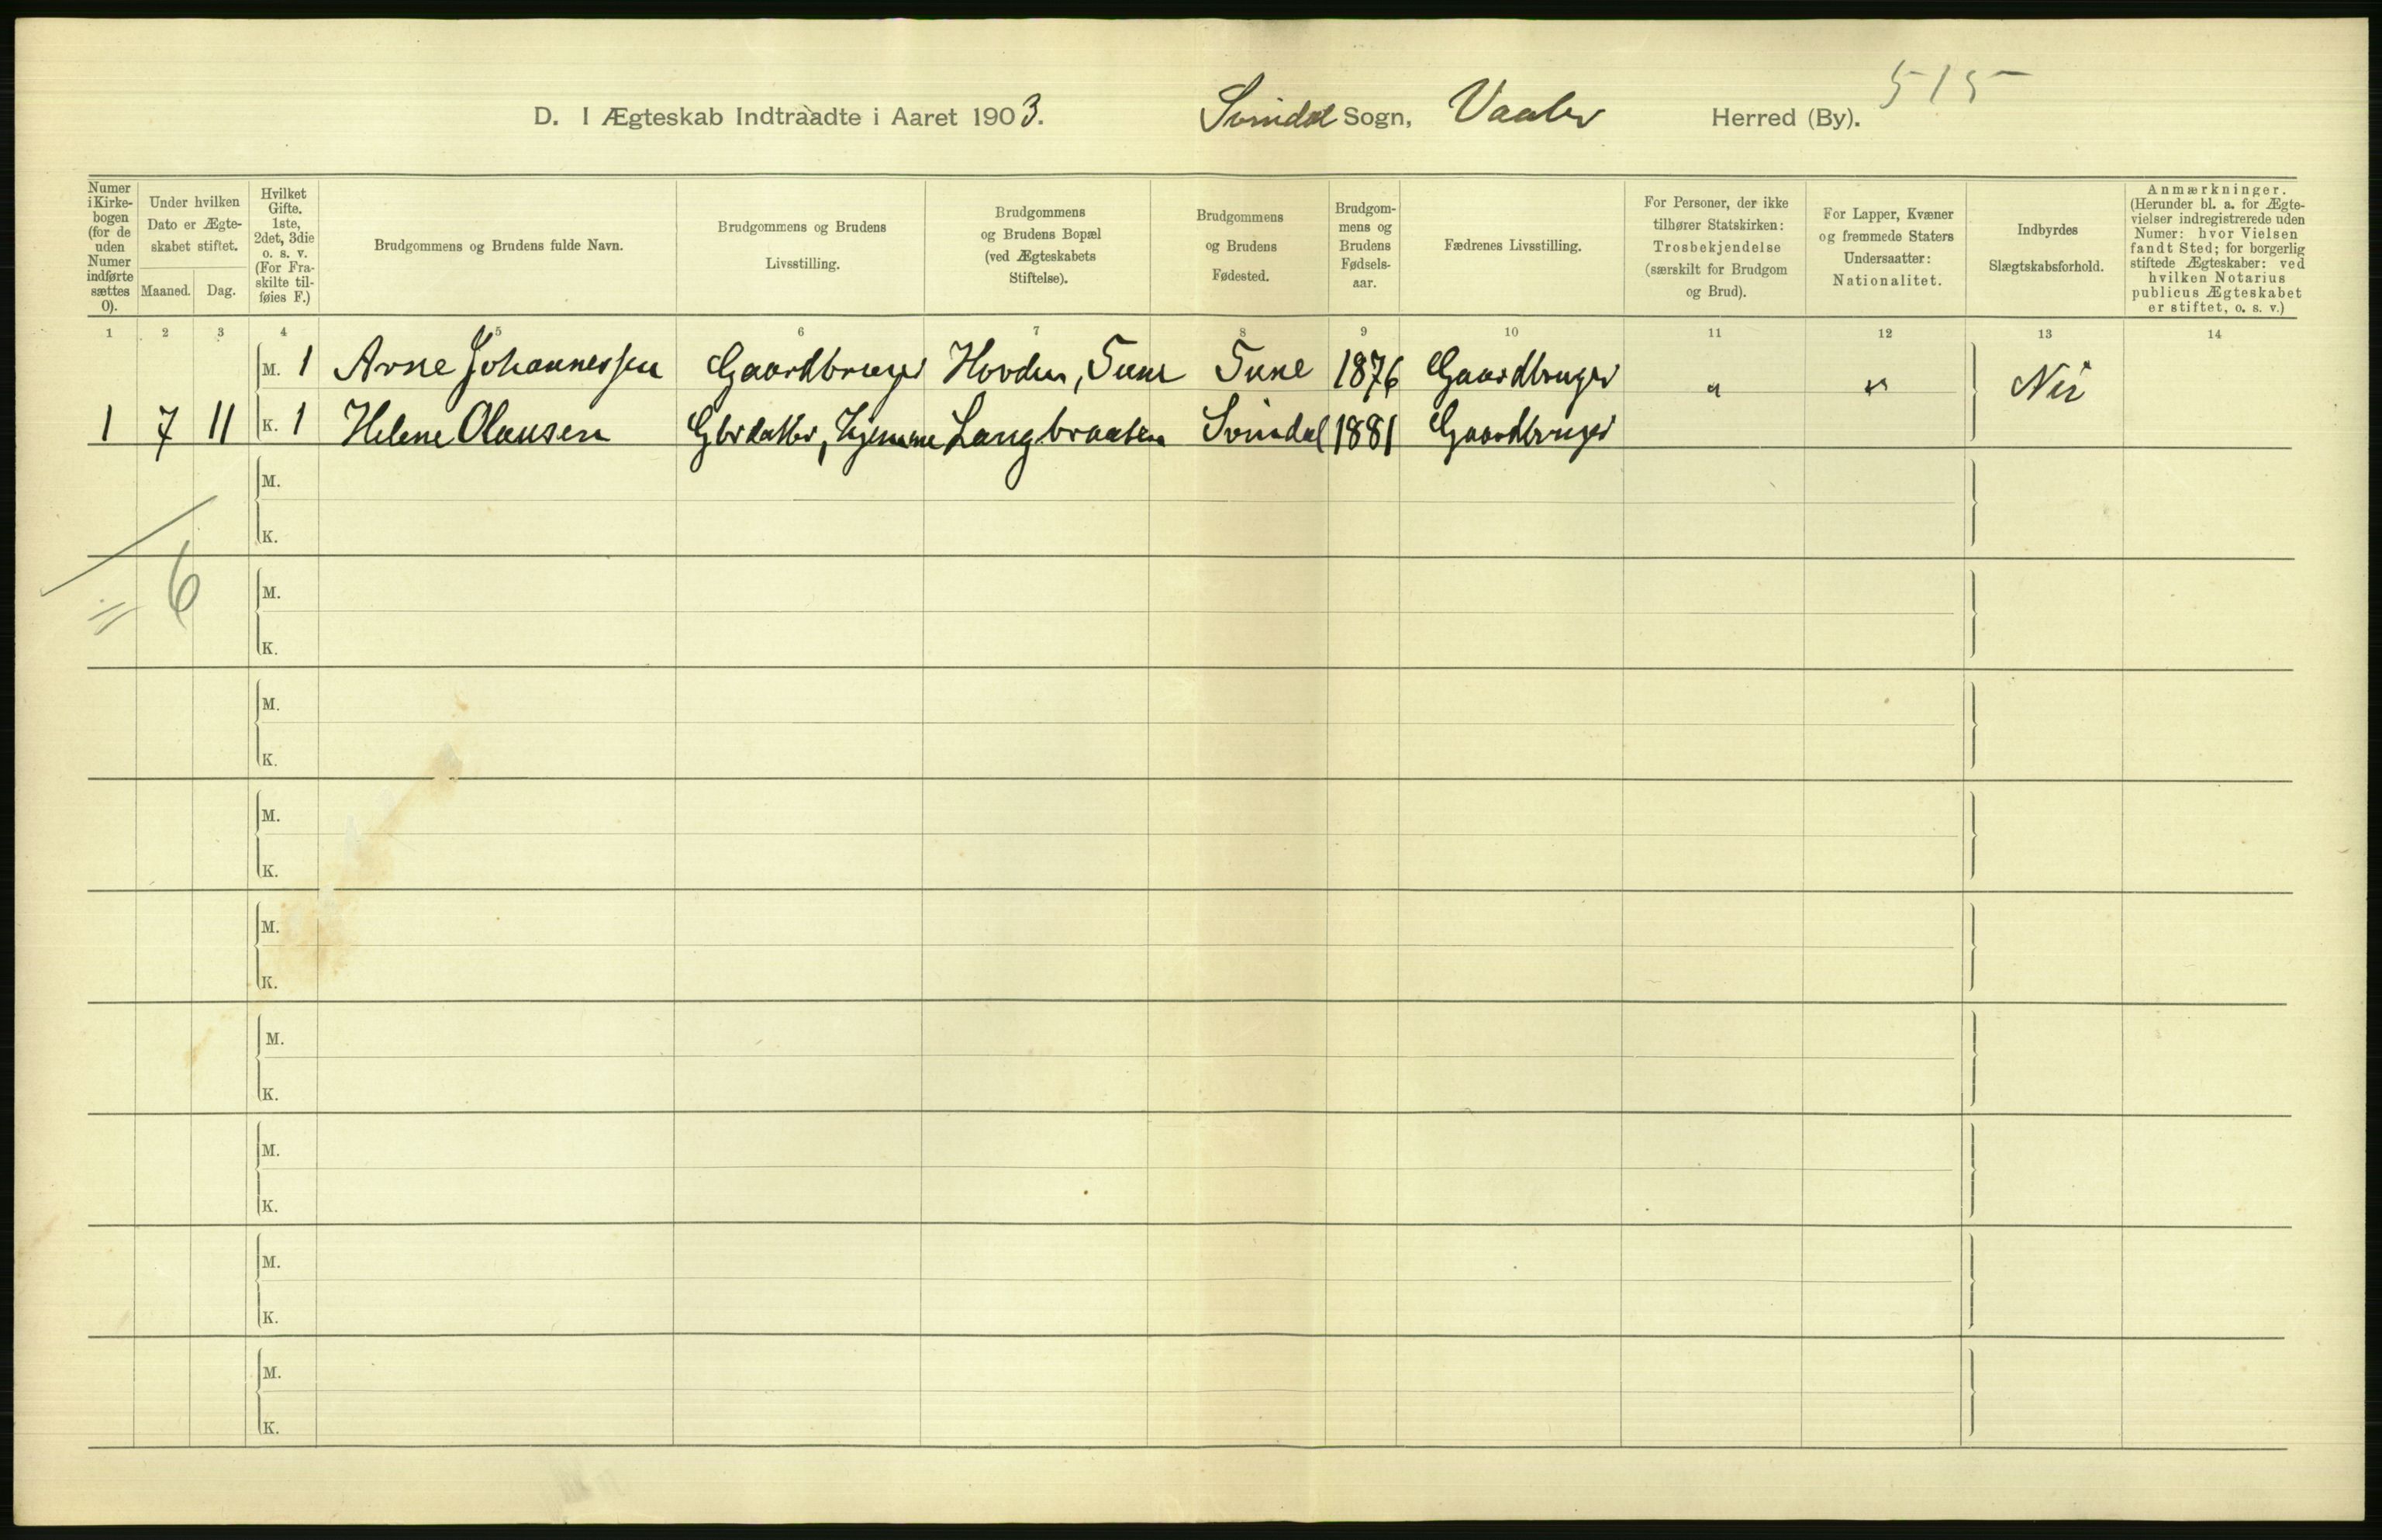 515
D. I Ægteskab Indtraadte i Aaret 1903. Svindal Sogn, Vaaler Herred (By).
Numer i Kirkebogen (for de uden Numer indførte sættes 0).
Under hvilken Dato er Ægteskabet stiftet.
Maaned. Dag.
Hvilket Gifte. 1ste, 2det, 3die o. s. v. (For Fraskilte tilføies F.)
Brudgommens og Brudens fulde Navn.
Brudgommens og Brudens Livsstilling.
Brudgommens og Brudens Bopæl (ved Ægteskabets Stiftelse).
Brudgommens og Brudens Fødested.
Brudgommens og Brudens Fødselsaar.
Fædrenes Livsstilling.
For Personer, der ikke tilhører Statskirken: Trosbekjendelse (særskilt for Brudgom og Brud).
For Lapper, Kvæner og fremmede Staters Undersaatter: Nationalitet.
Indbyrdes Slægtskabsforhold.
Anmærkninger. (Herunder bl. a. for Ægtevielser indregistrerede uden Numer: hvor Vielsen fandt Sted; for borgerlig stiftede Ægteskaber: ved hvilken Notarius publicus Ægteskabet er stiftet, o. s. v.)
1 2 3 4 5 6 7 8 9 10 11 12 13 14
M. 1 Arne Johannessen Gaardbruger Hovden, Tune Tune 1876 Gaardbruger " "
1 7 11 K. 1 Helene Olausen Gbrdatter, hjemme Langbraaten Svindal 1881 Gaardbruger
M.
K.
= 6
M.
K.
M.
K.
M.
K.
M.
K.
M.
K.
M.
K.
M.
K.
M.
K.